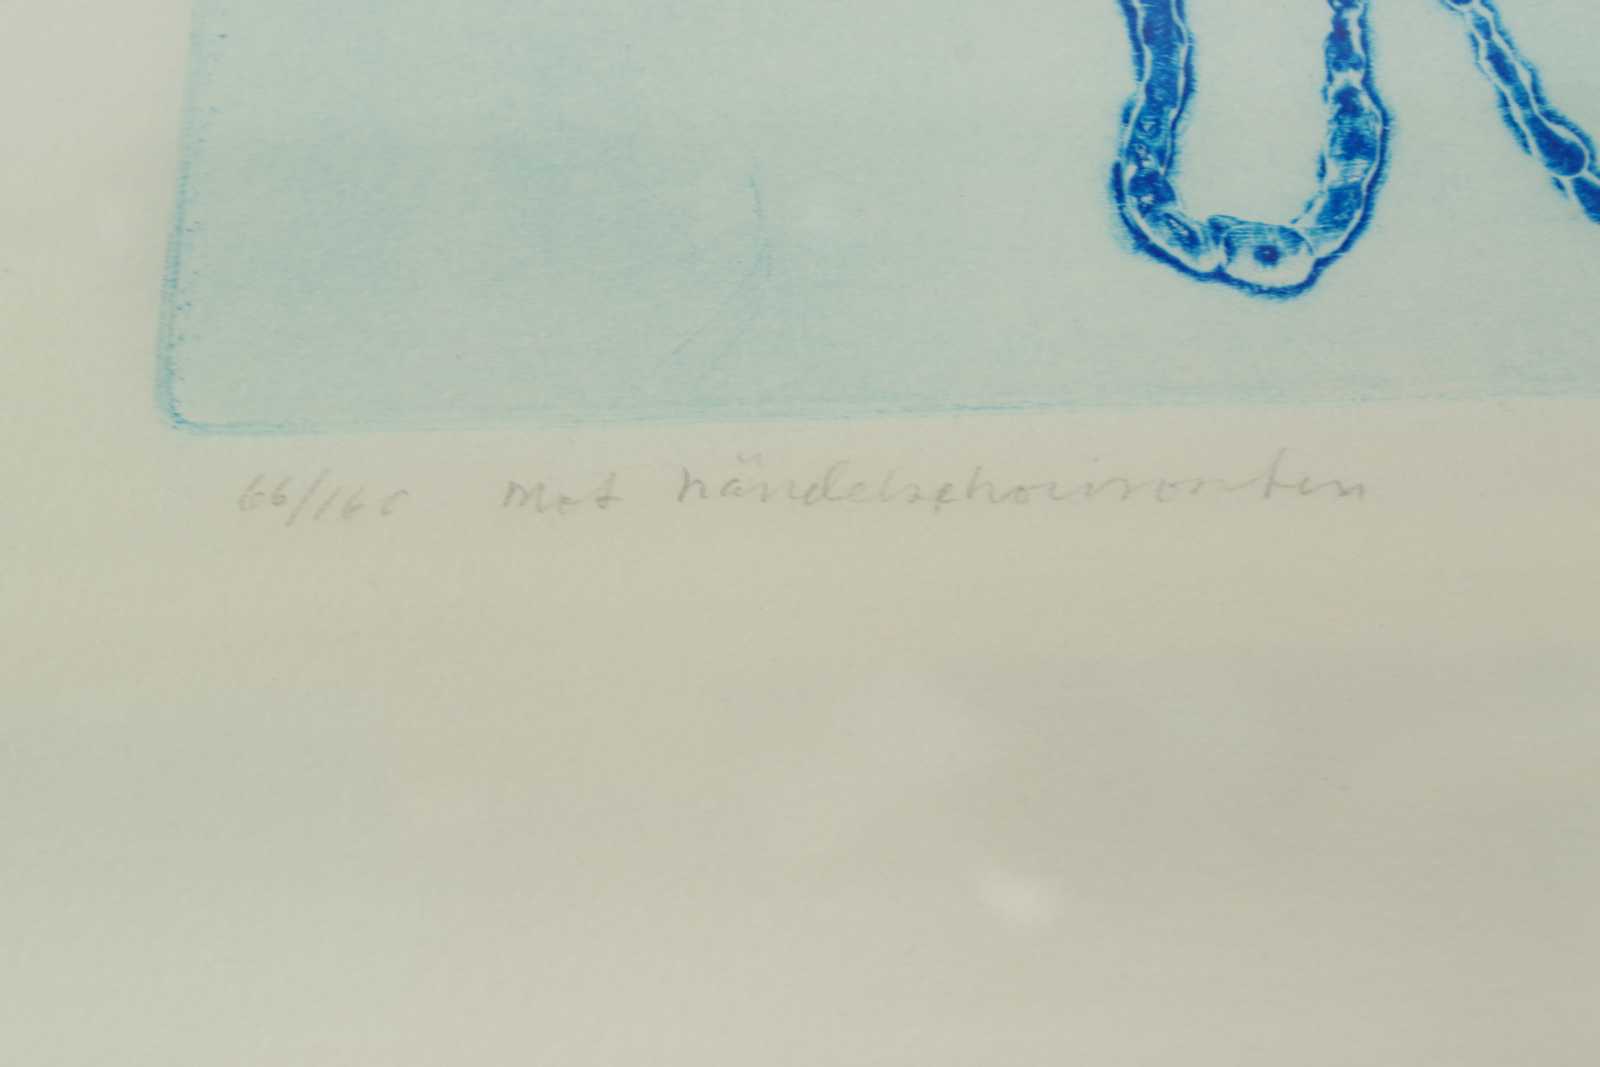 66/160 Mot händelsehorisonten